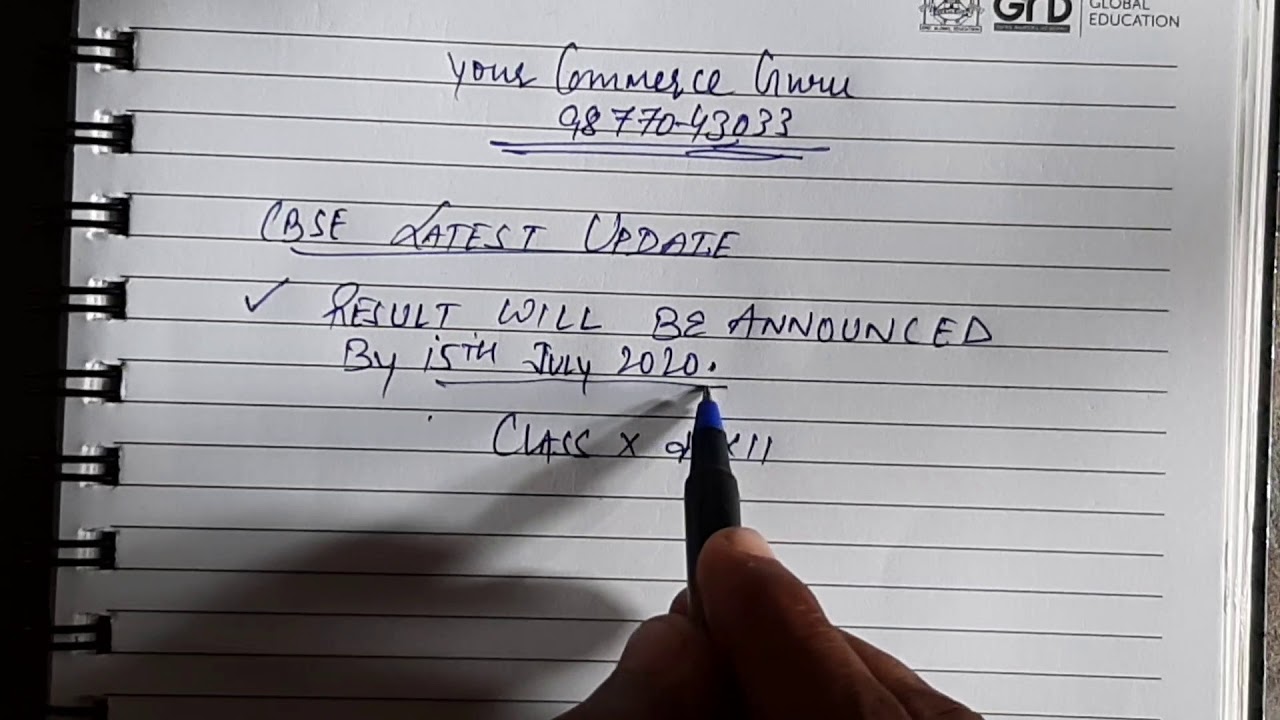 GrD
GLOBAL
EDUCATION
Your Commerce Guru
98770-43033
CBSE LATEST UPDATE
✓ RESULT WILL BE ANNOUNCED
By 15TH JULY 2020.
CLASS X & XII